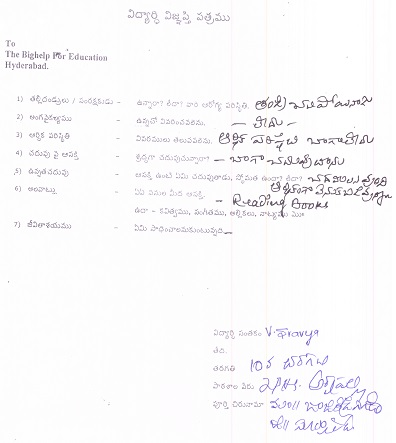 విద్యార్థి విజ్ఞప్తి పత్రము
To
The Bighelp For Education
Hyderabad.
1) తల్లిదండ్రులు / సంరక్షకుడు - ఉన్నారా? లేదా? వారి ఆరోగ్య పరిస్థితి. తండ్రి చనిపోయినాడు
2) అంగవైకల్యము - ఉన్నచో వివరించవలెను. - లేదు
3) ఆర్థిక పరిస్థితి - వివరములు తెలుపవలెను. ఆర్థిక పరిస్థితి బాగాలేదు
4) చదువు పై ఆసక్తి - శ్రద్ధగా చదువుచున్నారా? - బాగా చదువుతాను
5) ఉన్నతచదువు - ఆసక్తి ఉంటే ఏమి చదువుతారు, స్తోమత ఉందా? లేదా?
6) అలవాట్లు - ఏయే పనుల మీద ఆసక్తి. - Reading Books
ఉదా - కవిత్వము, సంగీతము, అల్లికలు, నాట్యము
7) జీవితాశయము - ఏమి సాధించాలనుకుంటున్నది
విద్యార్థి సంతకం V. Sravya
తేది.
తరగతి 10వ తరగతి
పాఠశాల పేరు ZPHS.
పూర్తి చిరునామా